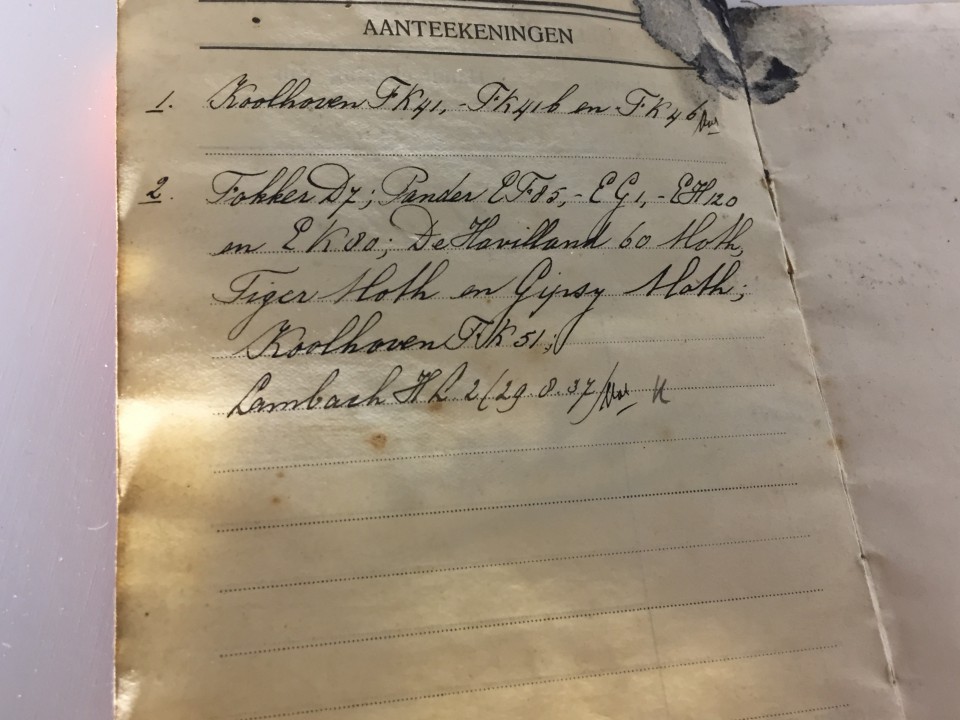 AANTEEKENINGEN
1. Koolhoven FK41, - FK41b en FK46
2. Fokker D7; Pander EF85, - EG1, - EH120
en EK80; De Havilland 60 Moth,
Tiger Moth en Gipsy Moth;
Koolhoven FK51;
Lambach HL 2 (29.8.37)